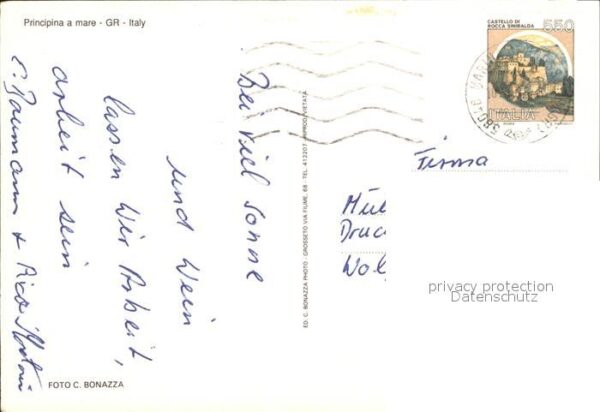 Principina a mare - GR - Italy
CASTELLO DI
ROCCA SINIBALDA
550
ITALIA
58046 MARINA
(GR)
Bei viel Sonne
und Wein
lassen wir Arbeit,
Arbeit sein
C. Baumann + Rico
Firma
Mül
Druc
Wol
privacy protection
Datenschutz
ED. C. BONAZZA PHOTO - GROSSETO VIA FIUME, 68 - TEL. 412207 - RIPROD. VIETATA
FOTO C. BONAZZA